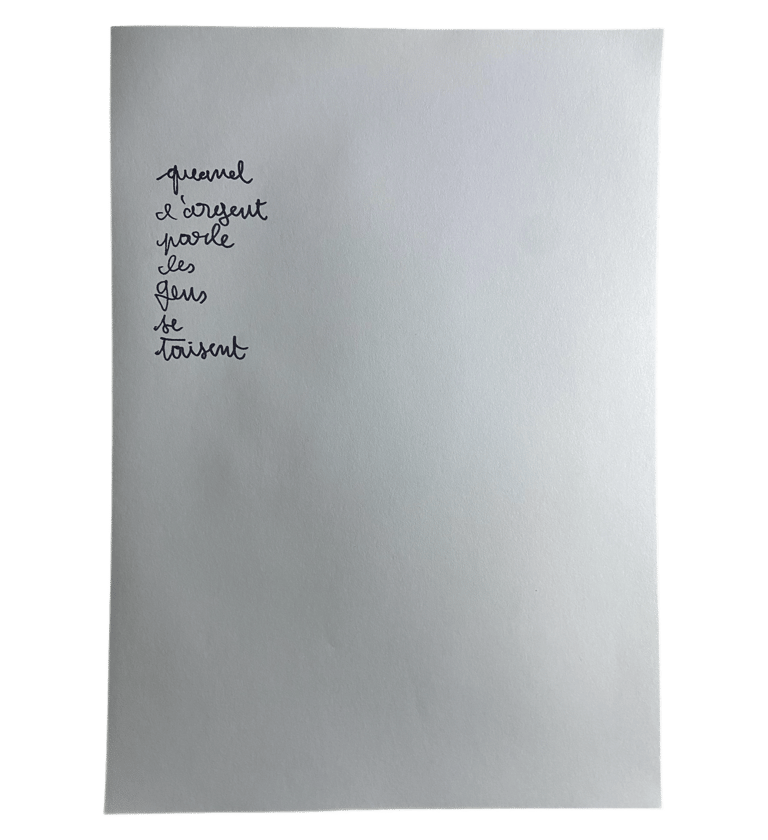 quand
l'argent
parle
les
gens
se
taisent